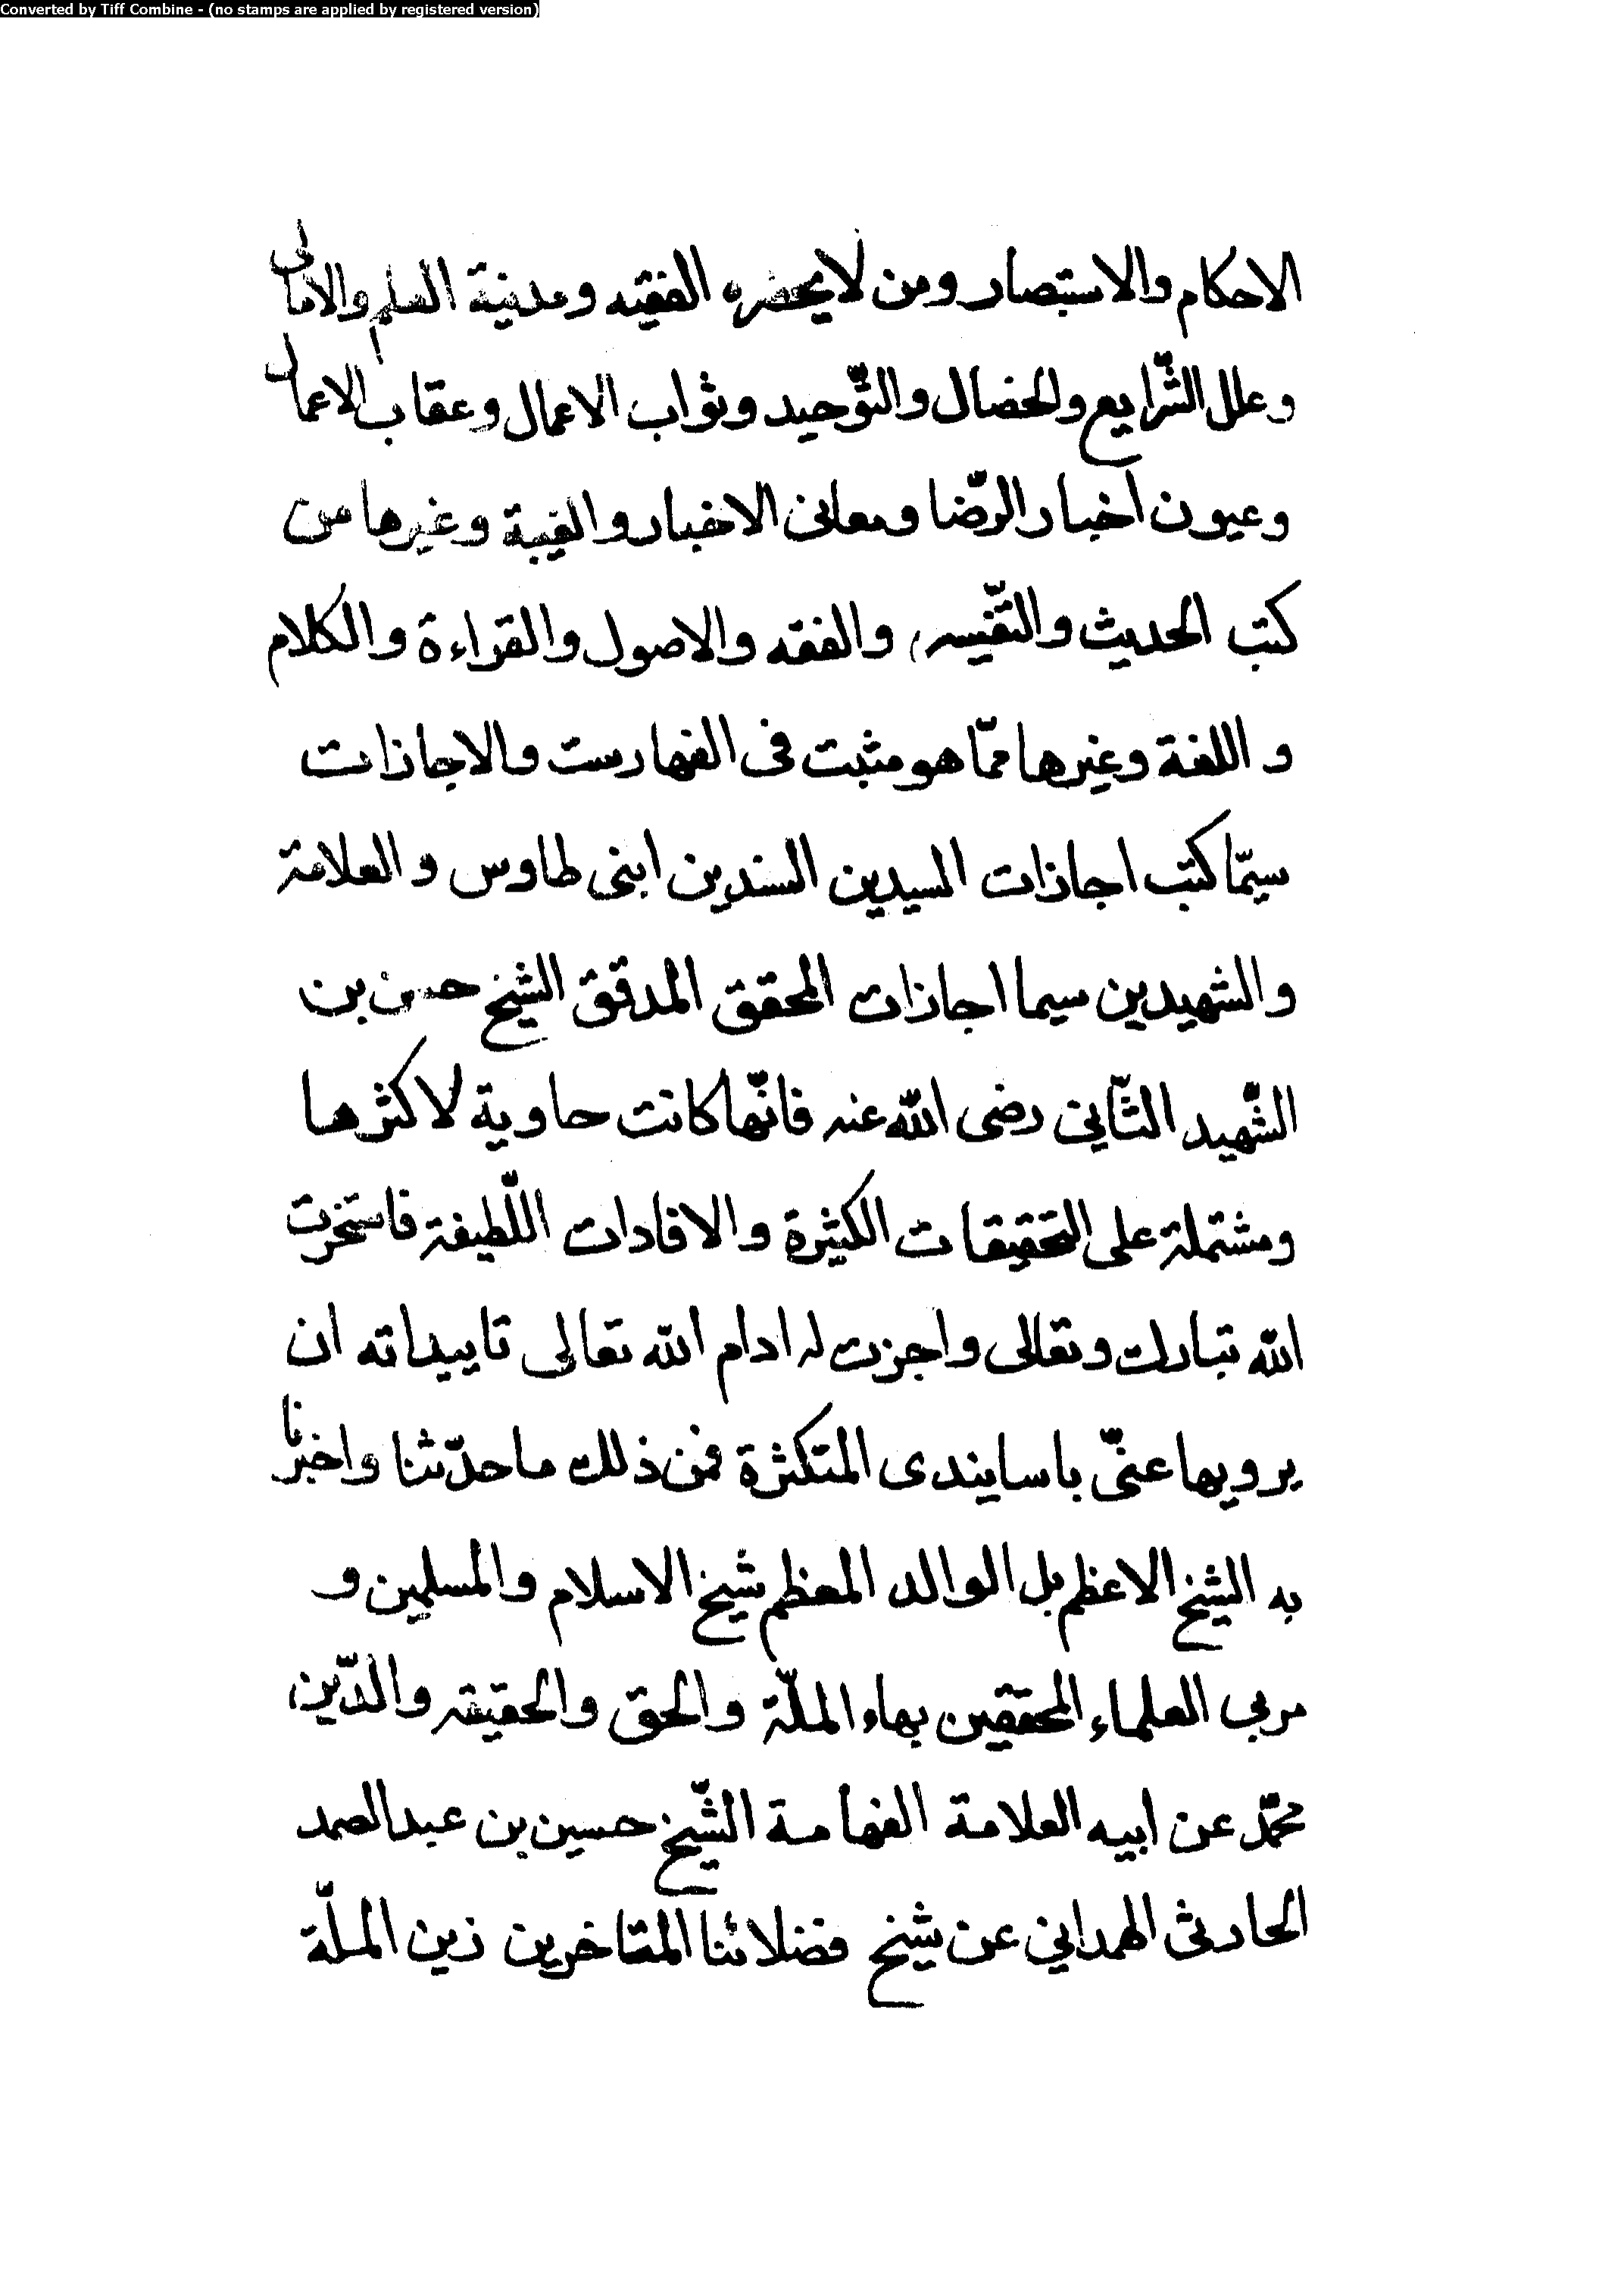 Converted by Tiff Combine - (no stamps are applied by registered version)
الاحكام والاستبصار ومن لا يحضره الفقيه ومدينة العلم والامالى
وعلل الشّرايع والخصال والتّوحيد وثواب الاعمال وعقاب الاعمال
وعيون اخبار الرّضا ومعانى الاخبار والغيبة وغيرها من
كتب الحديث والتّفسير والفقه والاصول والقراءة والكلام
و اللغة وغيرها ممّا هو مثبت فى الفهارست والاجازات
سيّما كتب اجازات السيدين السندين ابنى طاوس والعلامة
والشهيدين سيما اجازات المحقق المدقق الشيخ حسن بن
الشّهيد الثّاني رضى الله عنه فانّها كانت حاوية لاكثرها
ومشتملة على التحقيقات الكثيرة والافادات اللّطيفة فاستخرت
الله تبارك وتعالى واجزت له ادام الله تعالى تاييداته ان
يرويها عنّي باسانيدى المتكثرة فمن ذلك ما حدّثنا واخبرنا
به الشيخ الاعظم بل الوالد المعظم شيخ الاسلام والمسلمين و
مربى العلماء المحققين بهاء الملّة والحق والحقيقه والدّين
محمّد عن ابيه العلامة الفهامة الشّيخ حسين بن عبد الصمد
الحارثى الهمداني عن شيخ فضلائنا المتاخرين زين الملّة